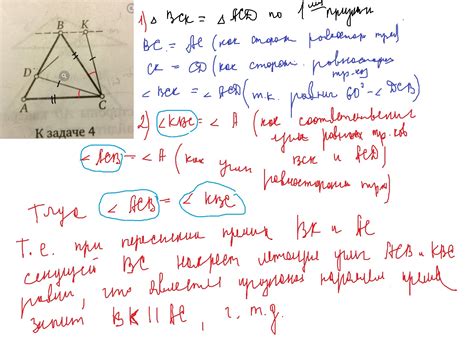 B K
D
A C
К задаче 4
1) △ BCK = △ ACD по 1 признаку
BC = AC (как стороны равностор. тр.)
CK = CD (как сторон. равностороннего
тр-ка)
∠ BCK = ∠ ACD (т.к. равны 60° - ∠ DCB)
2) ∠KBC = ∠ A (как соответственные
углы равных тр-ков
BCK и ACD)
∠ ACB = ∠ A (как углы
равностороннего тр-ка)
Тогда ∠ ACB = ∠ KBC
Т.е. при пересечении прямых BK и AC
секущей BC накрест лежащие углы ACB и KBC
равны, что является признаком параллельн. прямых
значит BK || AC, ч.т.д.